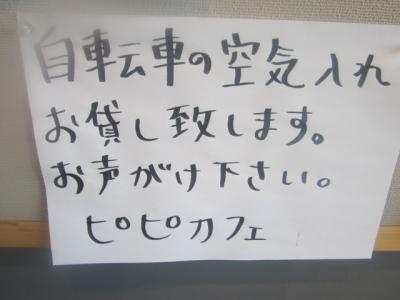 自転車の空気入れ
お貸し致します。
お声がけ下さい。
ピピカフェ